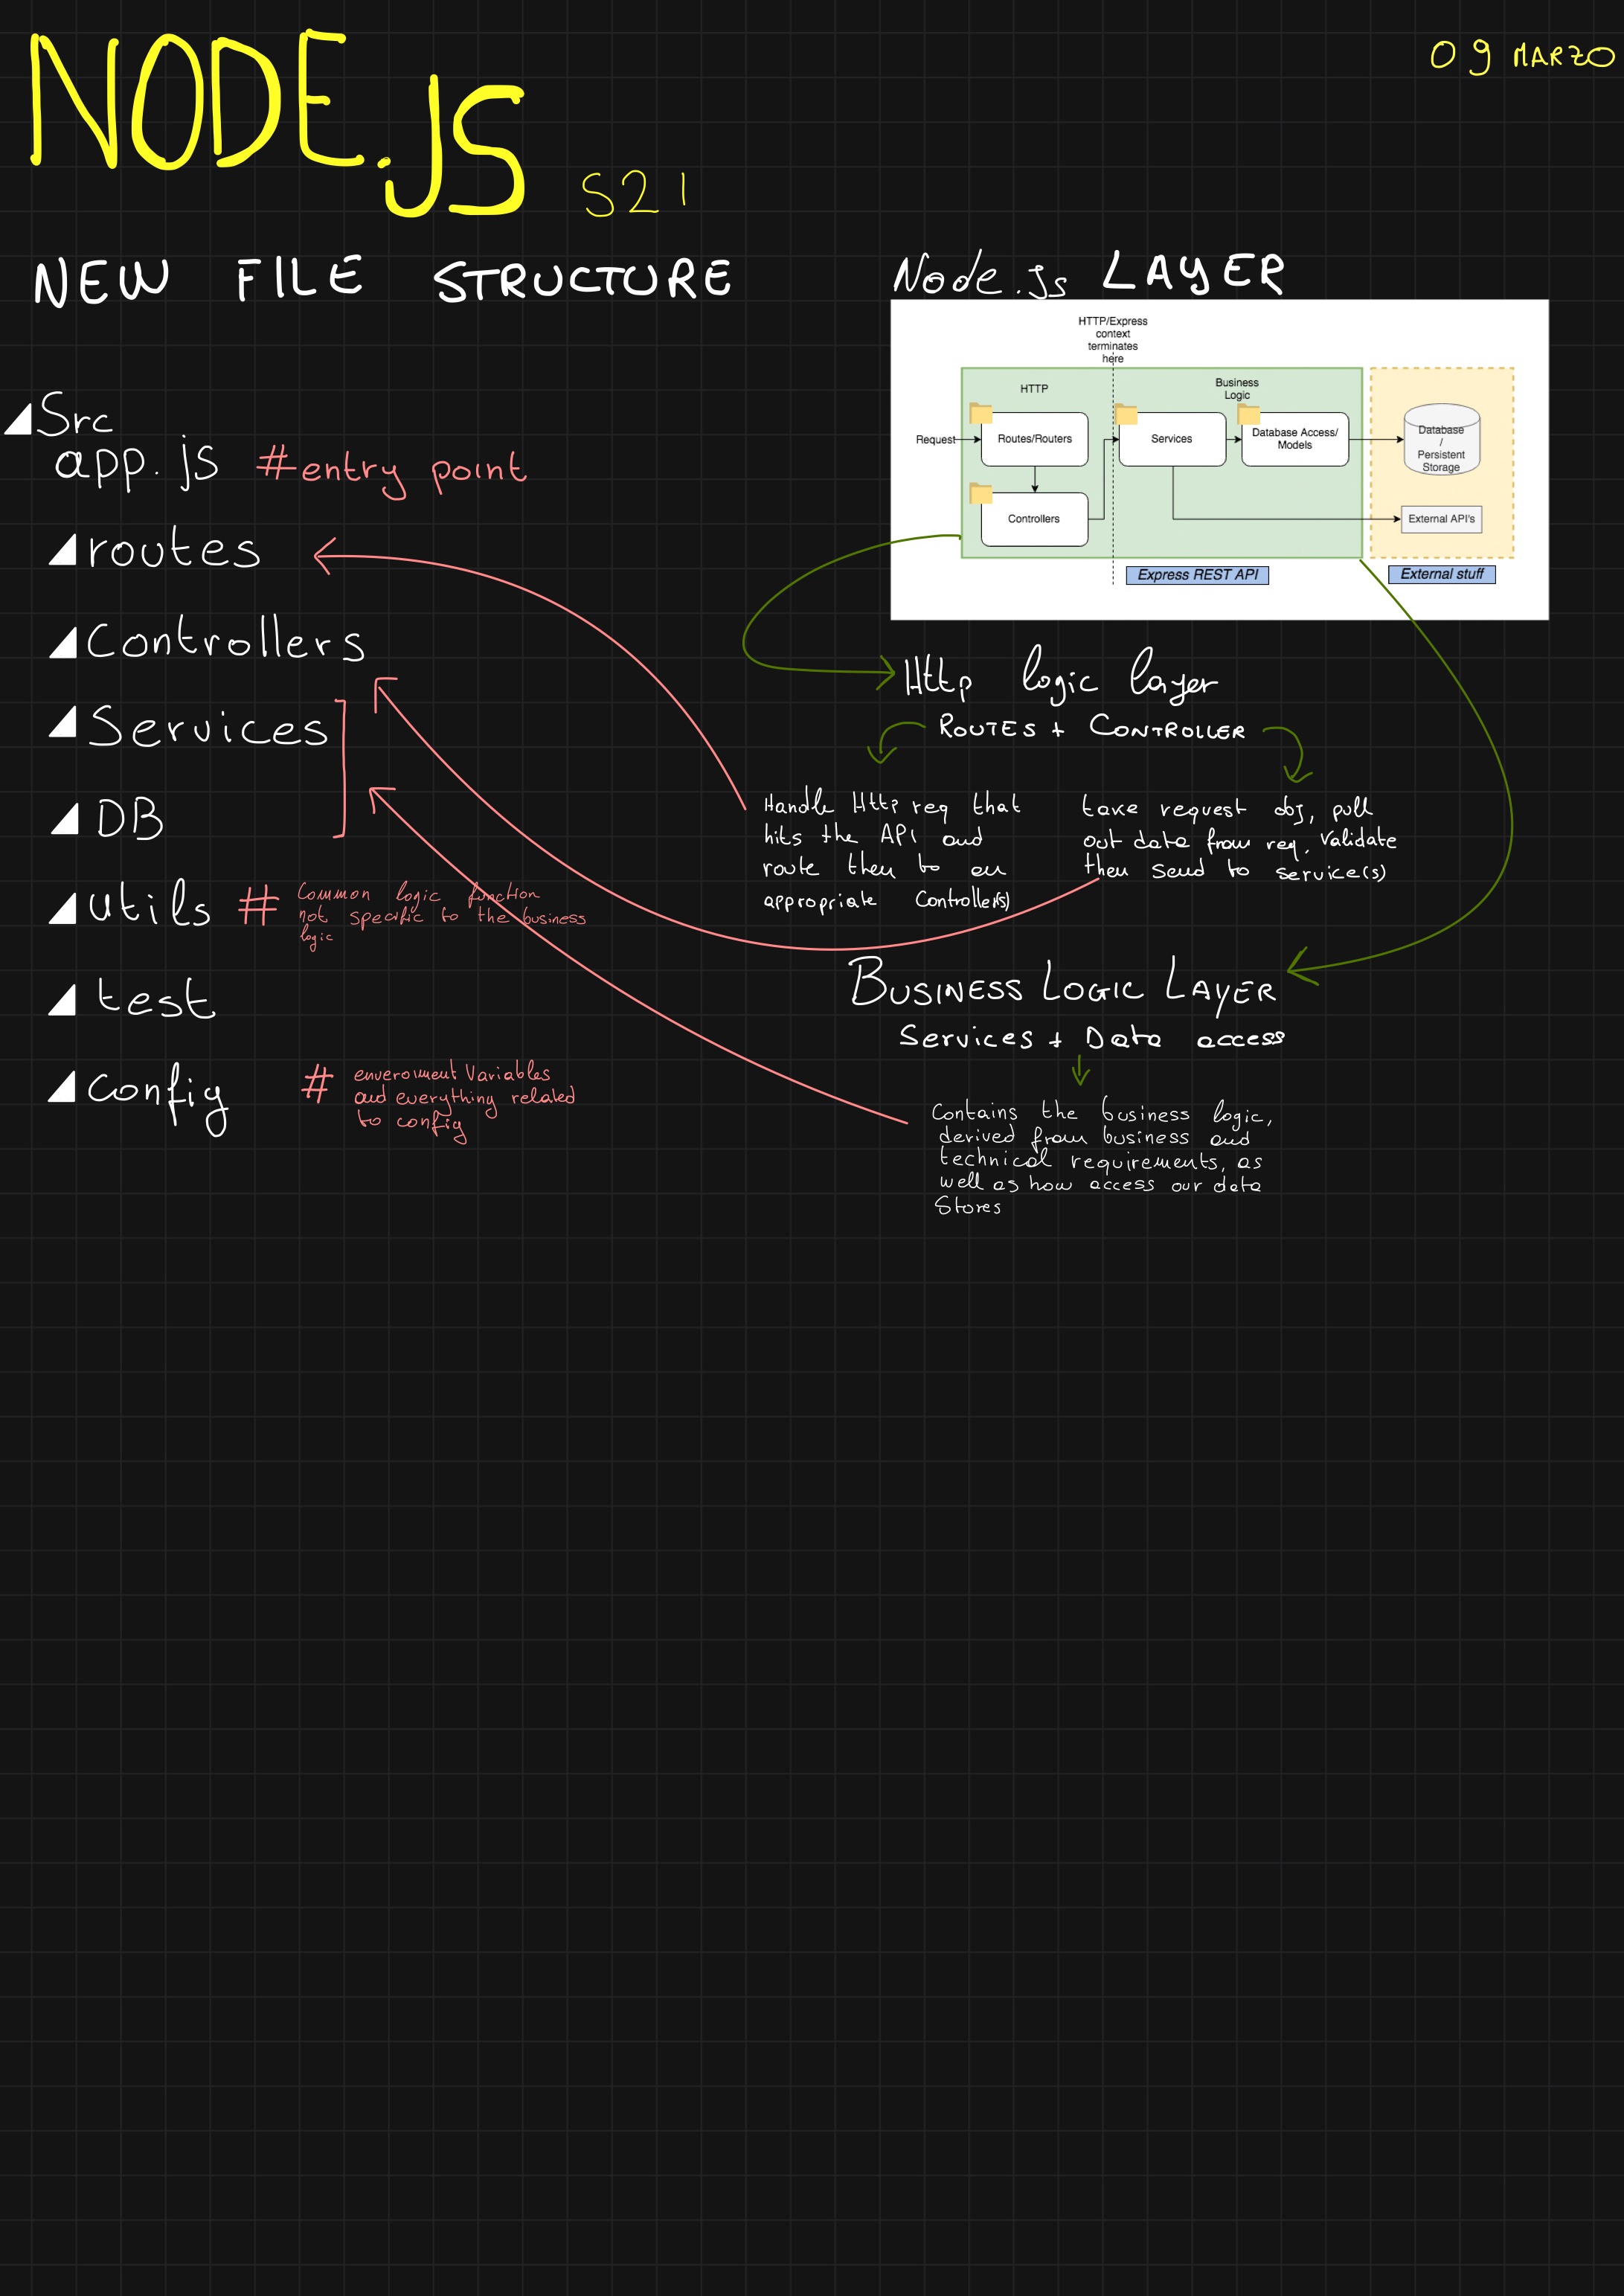 NODE.JS
S21
09 MARZO
NEW FILE STRUCTURE
Src
app.js #entry point
routes
Controllers
Services
DB
utils # Common logic function
not specific to the business
logic
test
Config # enveroiment Variables
and everything related
to config
Node.js LAYER
HTTP/Express
context
terminates
here
HTTP
Business
Logic
Request
Routes/Routers
Services
Database Access/
Models
Database
/
Persistent
Storage
Controllers
External API's
Express REST API
External stuff
Http logic layer
ROUTES + CONTROLLER
Handle Http req that
hits the API and
route then to an
appropriate Controller(s)
take request obj, pull
out data from req, validate
then send to service(s)
BUSINESS LOGIC LAYER
Services + Data access
Contains the business logic,
derived from business and
technical requirements, as
well as how access our data
Stores